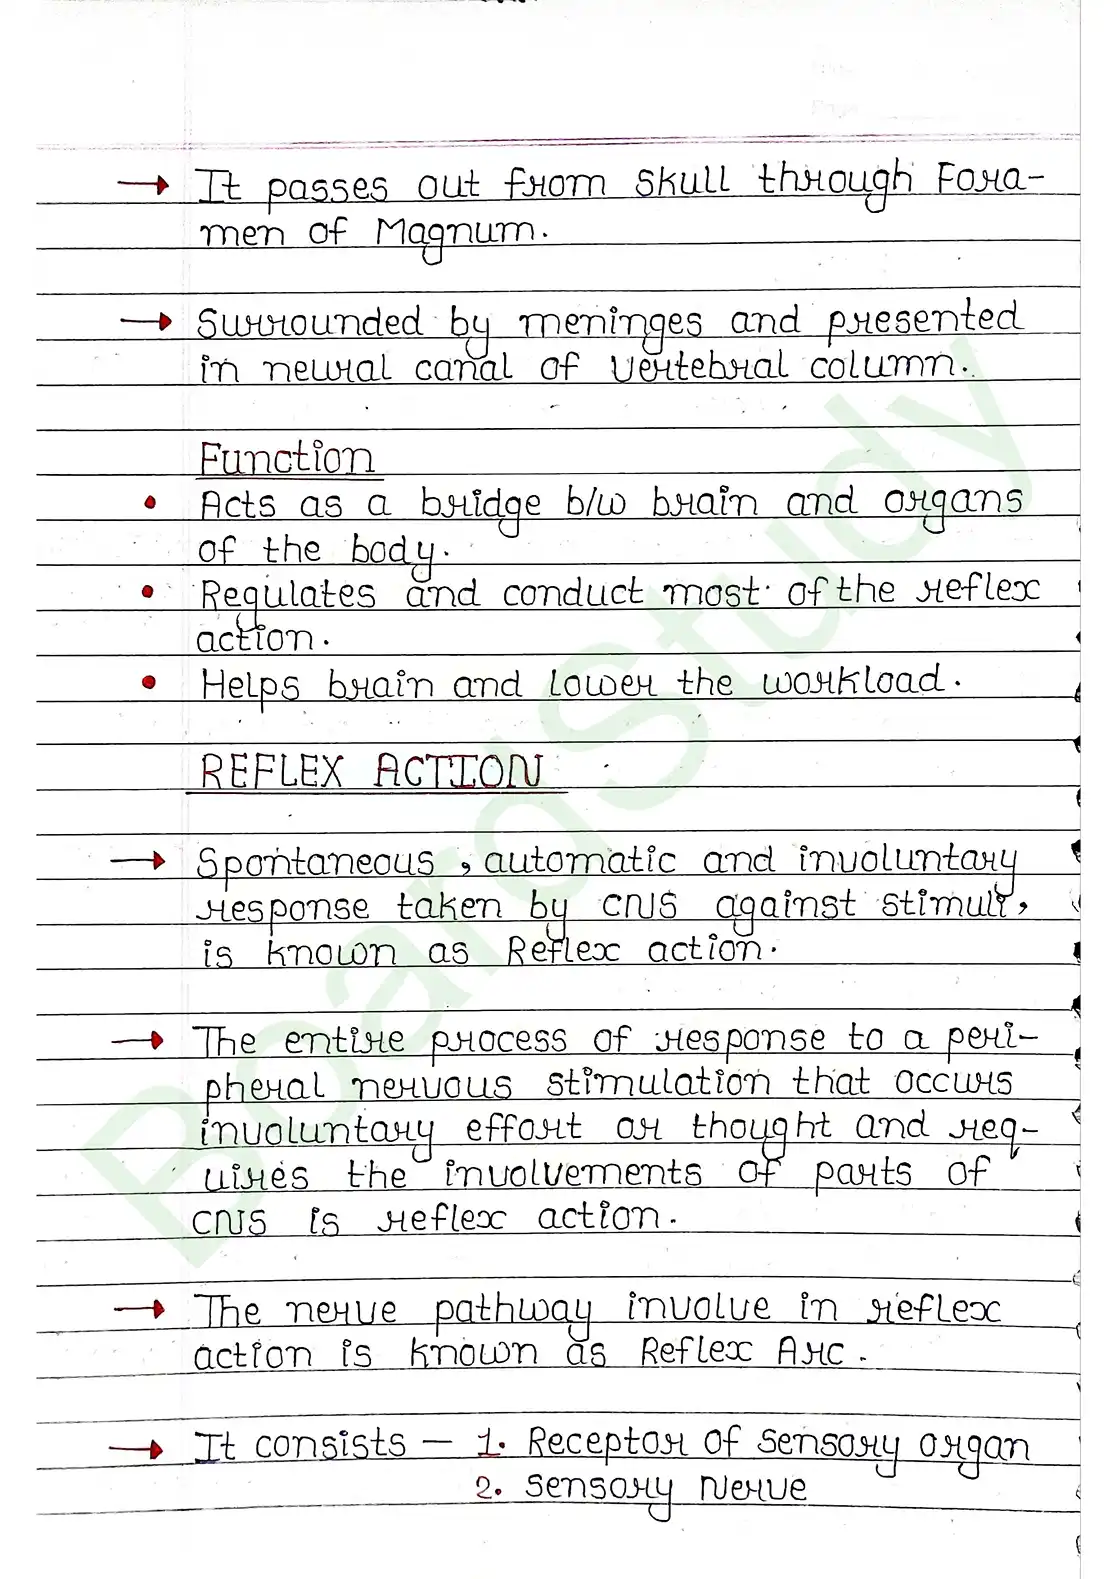 → It passes out from skull through Fora-
men of Magnum.
→ Surrounded by meninges and presented
in neural canal of vertebral column.
Function
• Acts as a bridge b/w brain and organs
of the body.
• Regulates and conduct most of the reflex
action.
• Helps brain and lower the workload.
REFLEX ACTION
→ Spontaneous, automatic and involuntary
response taken by CNS against stimuli,
is known as Reflex action.
→ The entire process of response to a peri-
pheral nervous stimulation that occurs
involuntary effort or thought and req-
uires the involvements of parts of
CNS is reflex action.
→ The nerve pathway involve in reflex
action is known as Reflex Arc.
→ It consists – 1. Receptor of sensory organ
2. Sensory Nerve
BoardStudy